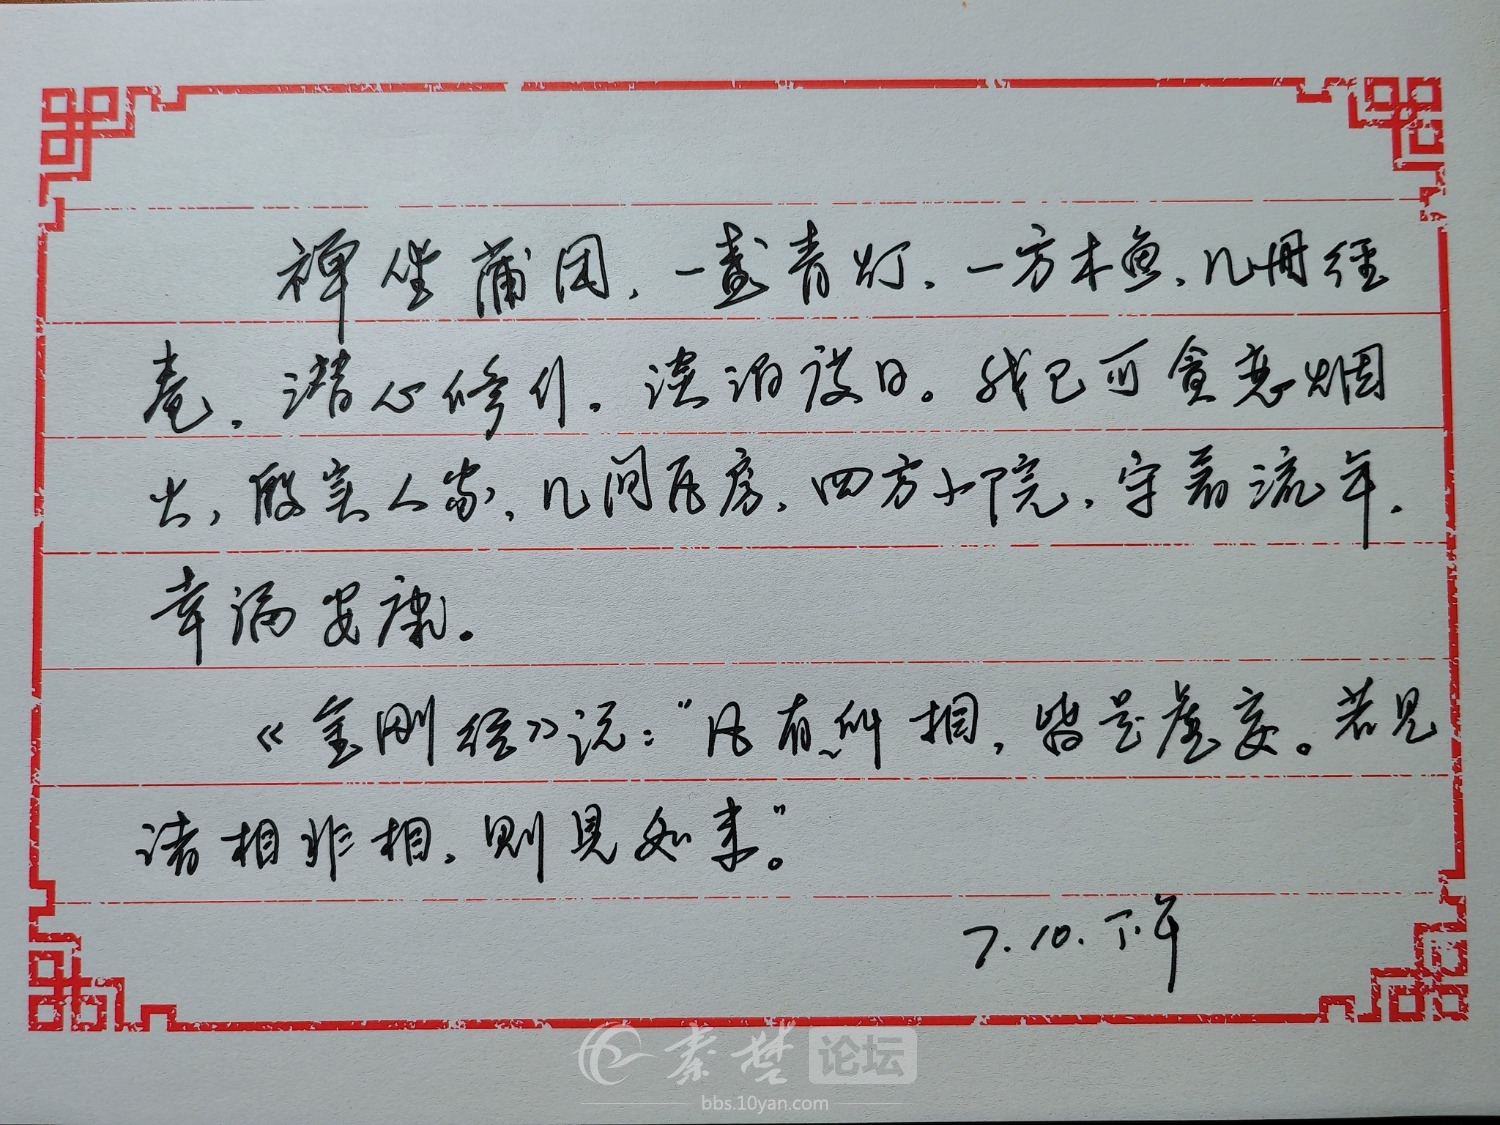 禅坐蒲团，一盏青灯，一方木鱼，几册经
卷，潜心修行，淡泊度日。我已可贪恋烟
火，殷实人家，几间瓦房，四方小院，守着流年，
幸福安康。
《金刚经》说："凡有所相，皆是虚妄。若见
诸相非相，则见如来。"
7.10.下午
秦楚论坛
bbs.10yan.com